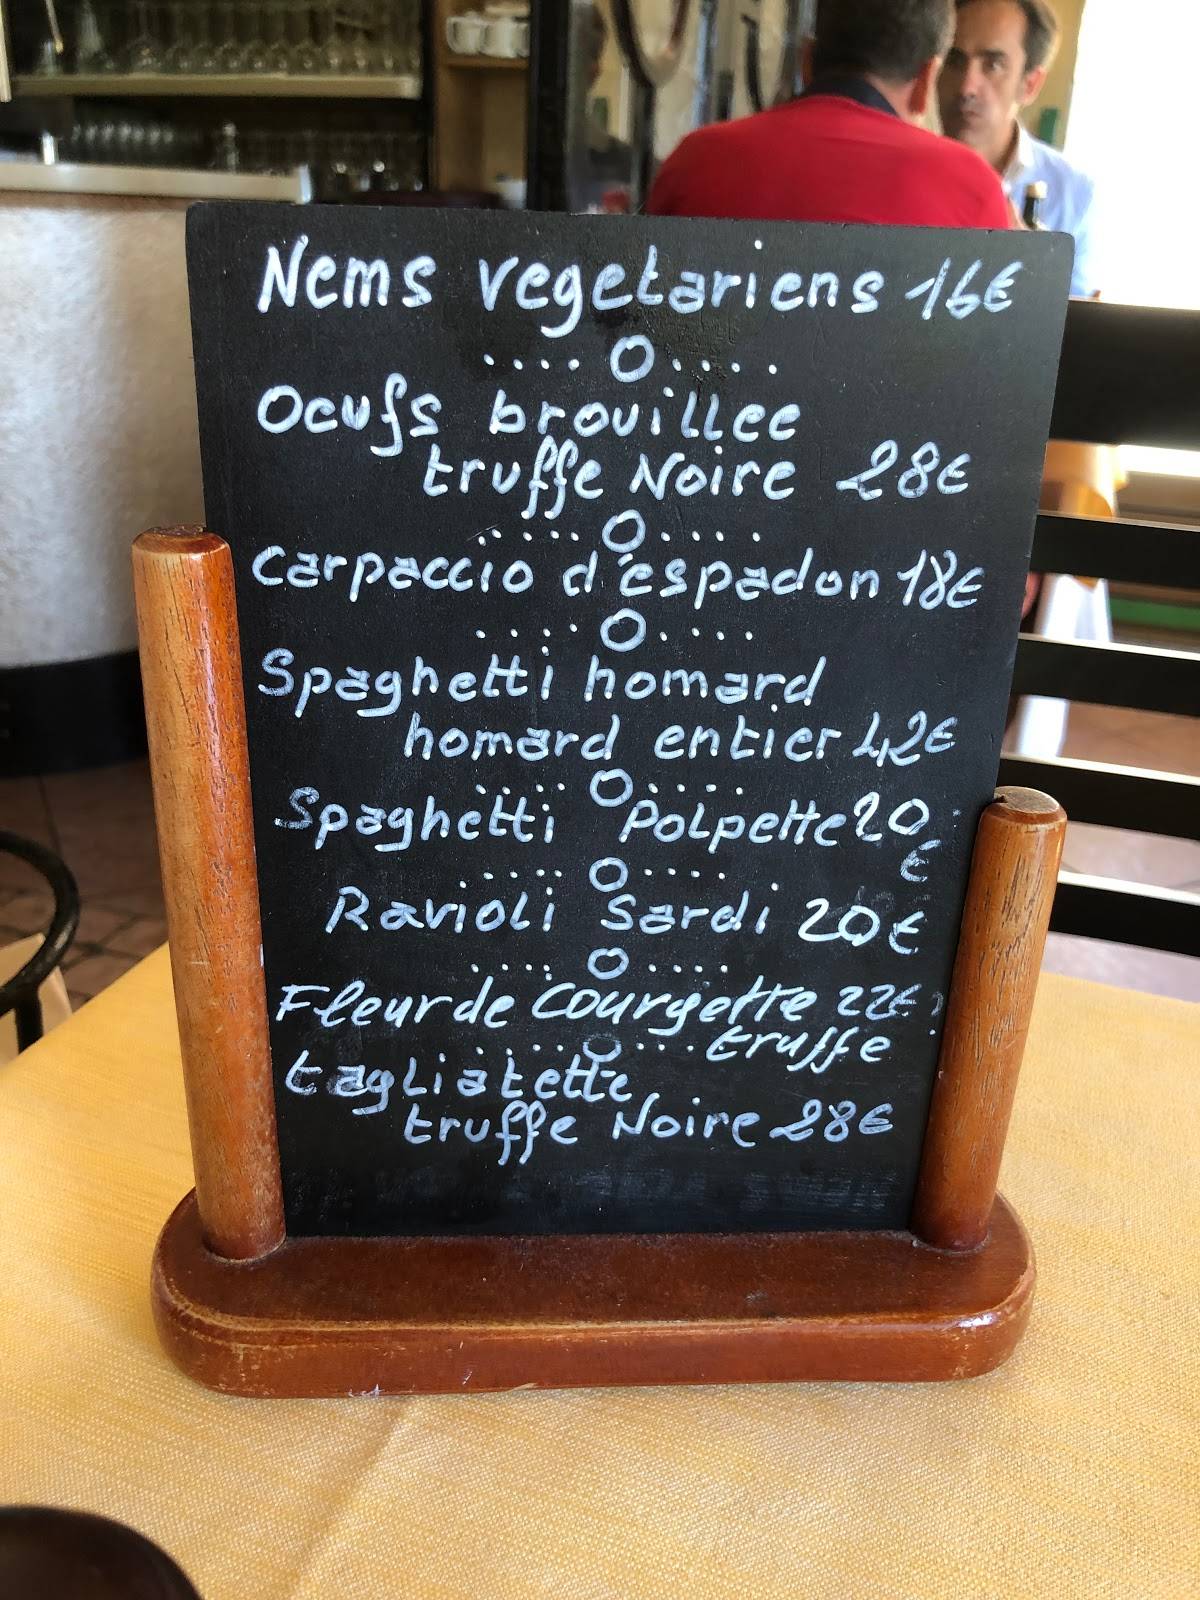 Nems vegetariens 16€
....O....
Oeufs brouillee
truffe Noire 28€
....O....
Carpaccio d'espadon 18€
....O....
Spaghetti homard
homard entier 42€
....O....
Spaghetti Polpette 20
€
....O....
Ravioli Sardi 20€
....O....
Fleur de Courgette 22€
....O.... truffe
tagliatette
truffe Noire 28€